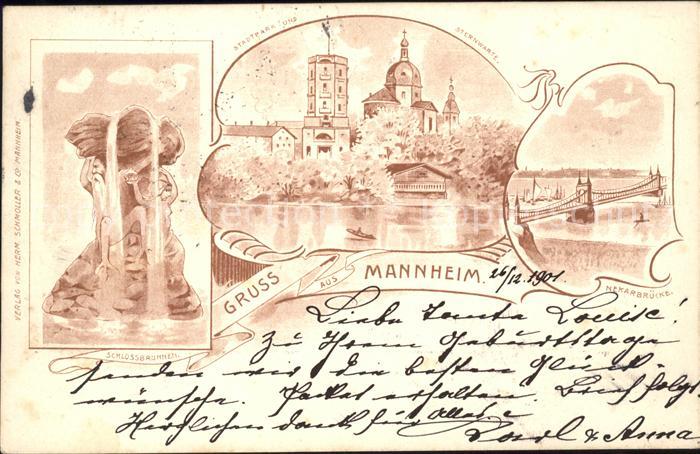 STADTPARK UND STERNWARTE.
VERLAG VON HERM. SCHMOLLER & CO. MANNHEIM.
GRUSS AUS MANNHEIM.
26/12. 1901.
SCHLOSSBRUNNEN.
NEKARBRÜCKE.
Liebe Tante Louise!
Zu Ihrem Geburtstage
senden wir die besten Glück-
wünsche. Packet erhalten. Brief folgt.
Herzlichen dank für Alles
Karl & Anna